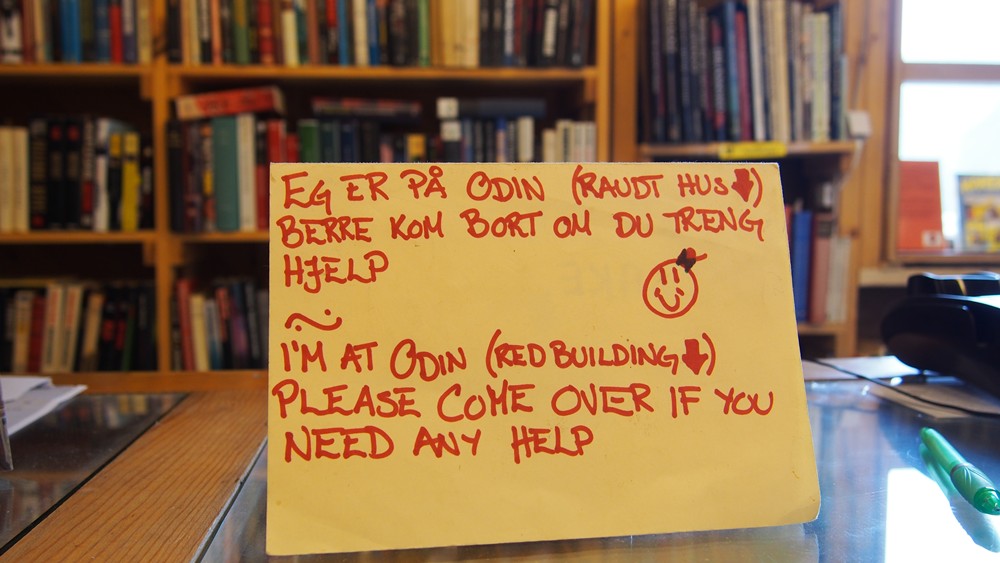 EG ER PÅ ODIN (RAUDT HUS⬇)
BERRE KOM BORT OM DU TRENG
HJELP
I'M AT ODIN (RED BUILDING⬇)
PLEASE COME OVER IF YOU
NEED ANY HELP